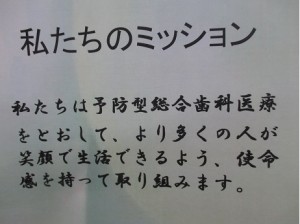 私たちのミッション
私たちは予防型総合歯科医療
をとおして、より多くの人が
笑顔で生活できるよう、使命
感を持って取り組みます。